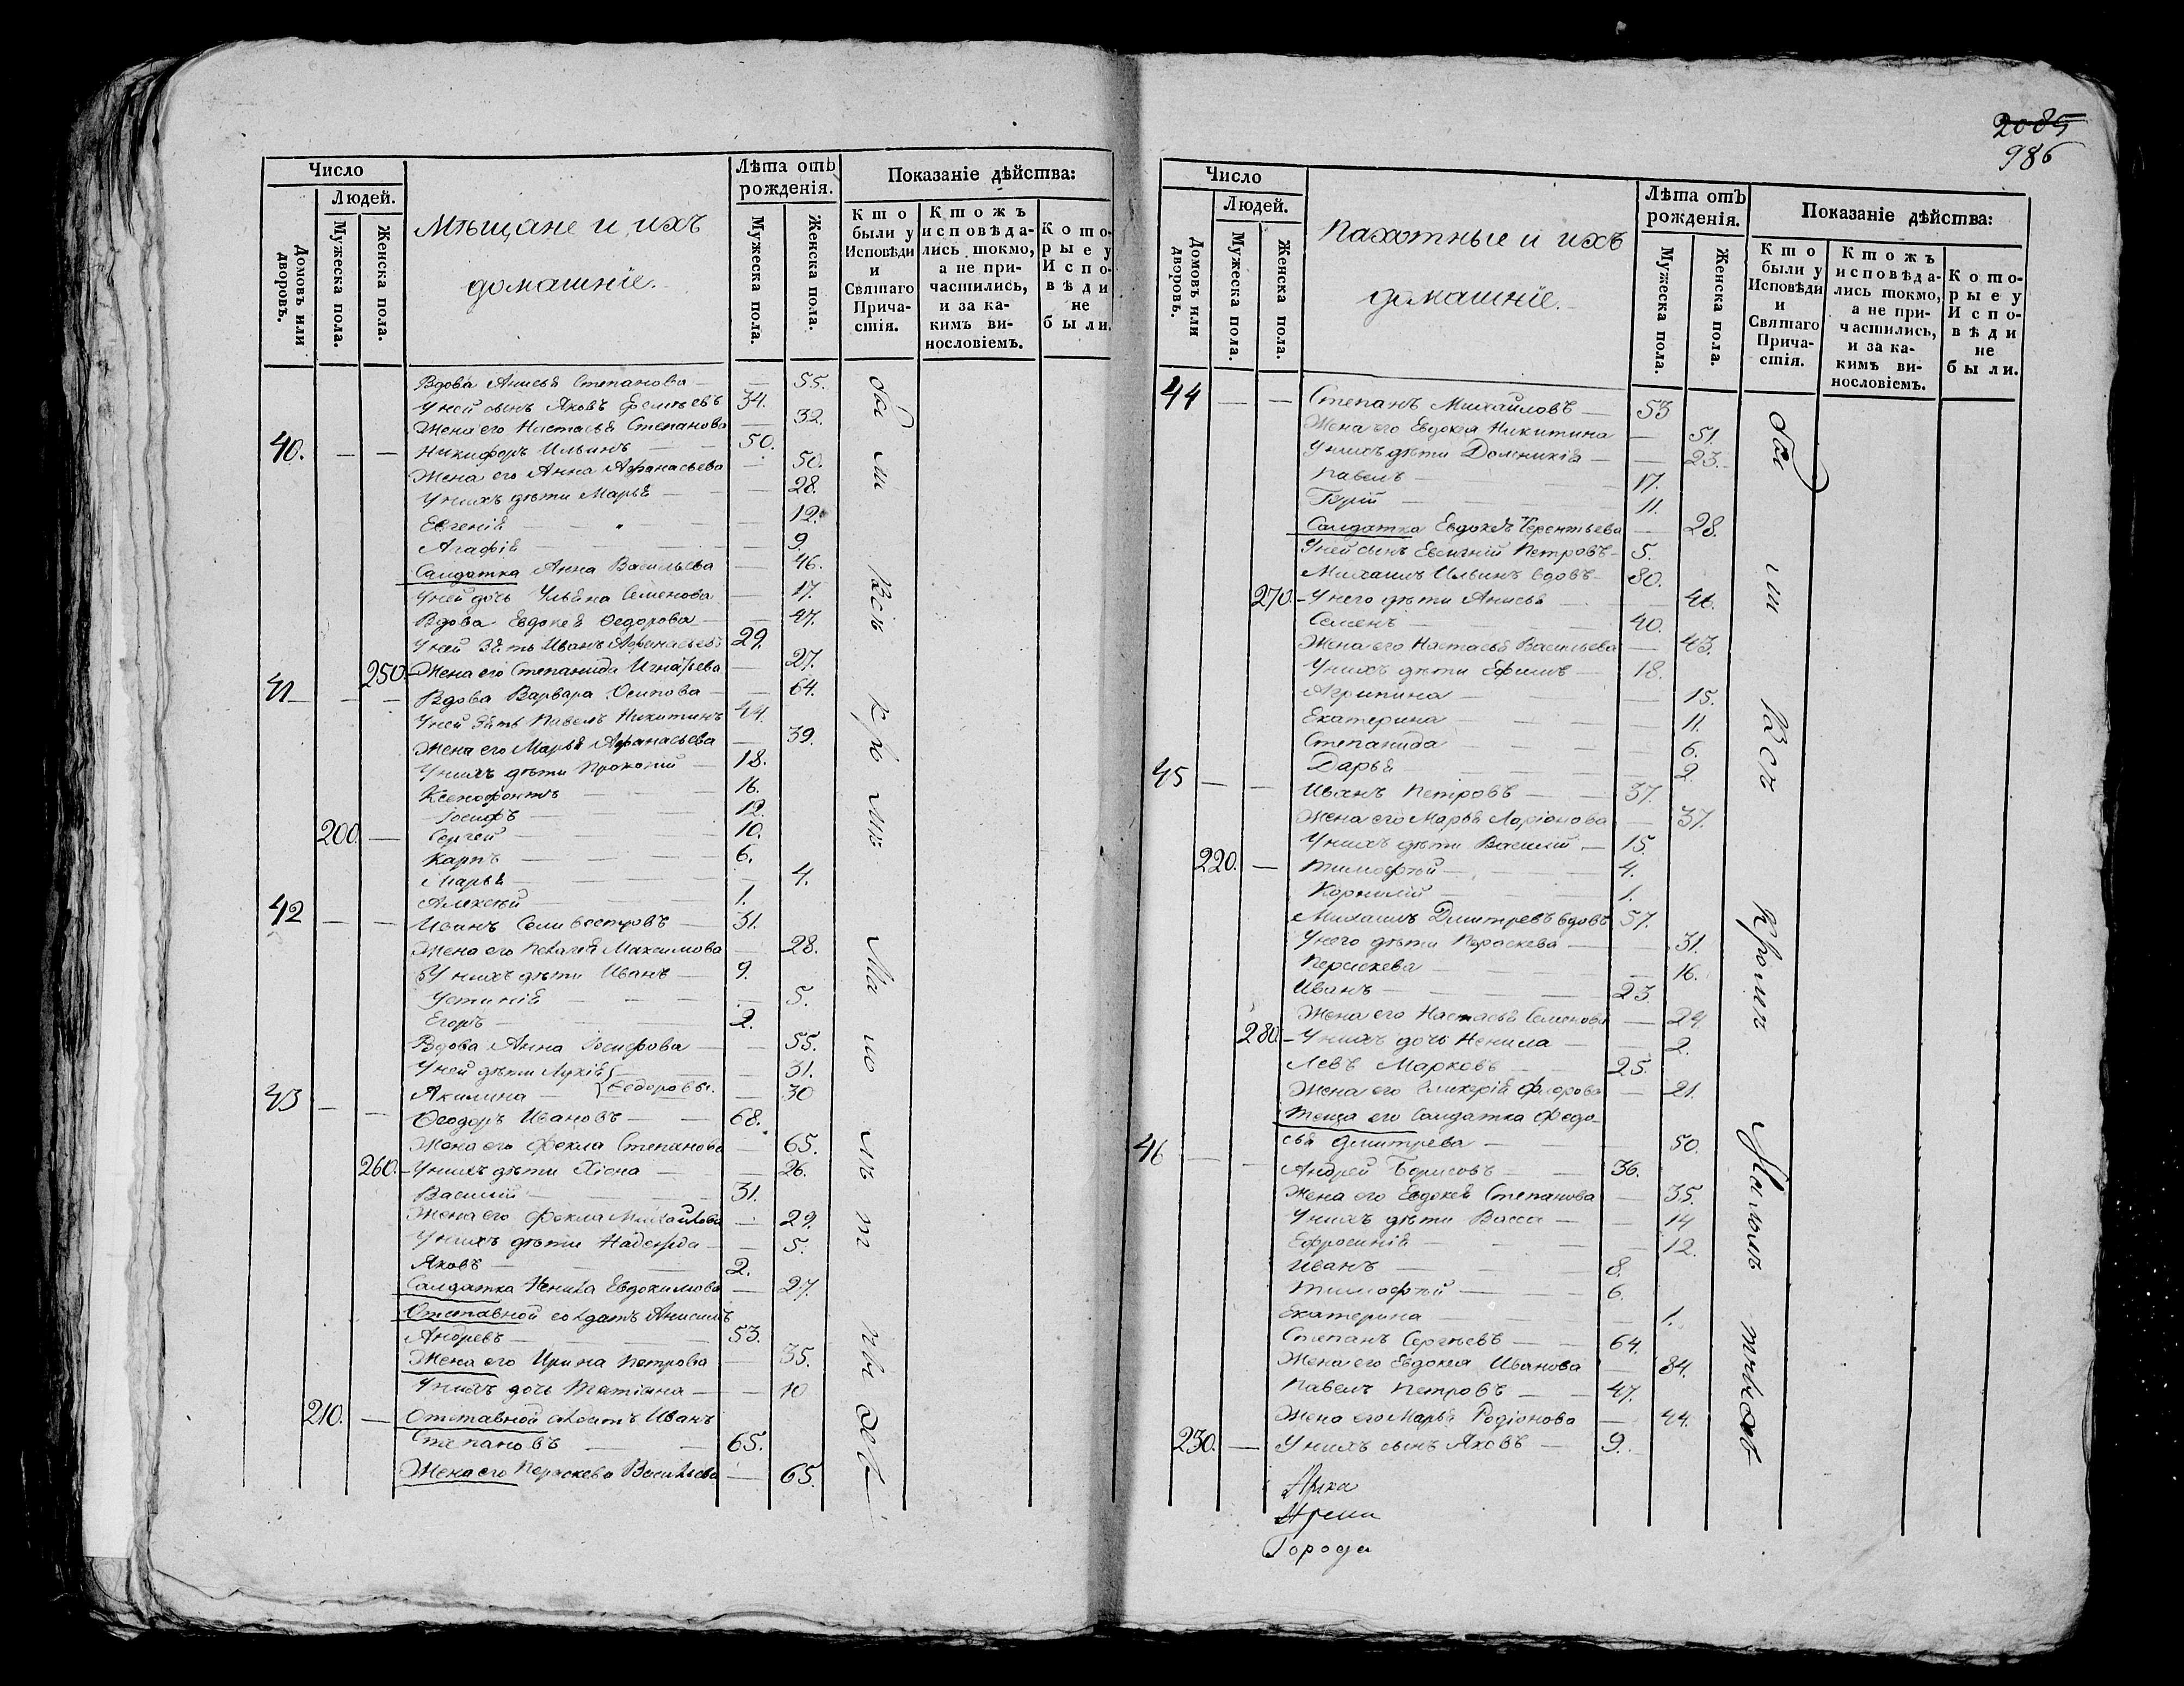 2085
986
Число
Людей.
Домовъ или дворовъ.
Мужеска пола.
Женска пола.
Мѣщане и ихъ
домашніе.
Лѣта отъ
рожденія.
Мужеска пола.
Женска пола.
Показаніе дѣйства:
Кто были у Исповѣди и Святаго Причастія.
Ктожъ исповѣдались токмо, а не причастились, и за какимъ винословіемъ.
Которые у Исповѣди не были.
Вдова Анисья Степанова — — 55.
У ней сынъ Яковъ 34.
Жена его Настасья Степанова — 32.
40. — — Никифоръ Ильинъ — 50.
Жена его Анна Афанасьева — 50.
У нихъ дѣти Марья — — 28.
Евгенія — — — 12.
Агафія — — — 9.
Салдатка Анна Васильева — 46.
У ней дочь Ульяна Семенова — 17.
Вдова Евдокея Ѳедорова — — 47.
У ней зять Иванъ Афанасьевъ 29.
250. — Жена его Степанида Игнатьева — 27.
41 — — — Вдова Варвара Осипова — — 64.
У ней зять Павелъ Никитинъ 44.
Жена его Марья Афанасьева — 39.
У нихъ дѣти Прокопій — 18.
Ксенофонтъ — — 16.
Іосифъ — — 12.
200. — Сергей — — 10.
Карпъ — — 6.
Марья — — — 4.
Алексѣй — — 1.
42 — — Иванъ Селивестровъ — 31.
Жена его Пелагея Максимова — 28.
У нихъ дѣти Иванъ — 9.
Устинія — — — 5.
Егоръ — — 2.
Вдова Анна Іосифова — — 55.
У ней дѣти Лукія — — 31.
Акилина — Ѳедоровы. — 30
43 — — Ѳеодоръ Ивановъ — — 68.
Жена его Фекла Степанова — 65.
260. — У нихъ дѣти Хіона — — 26.
Василій — — 31.
Жена его Фекла Михайлова — 29.
У нихъ дѣти Надежда — — 5.
Яковъ — — 2.
Салдатка Ненила Евдокимова — 27.
Отставной солдатъ Анисимъ
Андревъ — — 53.
Жена его Ирина Петрова — 35.
У нихъ дочь Татіана — — 10
210. — Отставной солдатъ Иванъ
Степановъ — — 65.
Жена его Параскева Васильева — 65.
были Всѣ кромѣ малолѣтныхъ
Число
Людей.
Домовъ или дворовъ.
Мужеска пола.
Женска пола.
Пахотные и ихъ
домашніе.
Лѣта отъ
рожденія.
Мужеска пола.
Женска пола.
Показаніе дѣйства:
Кто были у Исповѣди и Святаго Причастія.
Ктожъ исповѣдались токмо, а не причастились, и за какимъ винословіемъ.
Которые у Исповѣди не были.
44 — — Степанъ Михайловъ — 53
Жена его Евдокея Никитина — 51.
У нихъ дѣти Домникія — — 23.
Павелъ — — 17.
Гурій — — 11.
Салдатка Евдокея Терентьева — 28.
У ней сынъ Евгеній Петровъ — 5.
Михаилъ Ильинъ вдовъ 80.
270. — У него дѣти Анисья — — 46.
Семенъ — — 40.
Жена его Настасья Васильева — 43.
У нихъ дѣти Ефимъ — 18.
Агрипина — — — 15.
Екатерина — — — 11.
Степанида — — — 6.
Дарья — — — 2.
45 — — Иванъ Петровъ — — 37.
Жена его Марья Ларіонова — 37.
У нихъ дѣти Василій — 15.
220. — Тимофѣй — — 4.
Корнилій — — 1.
Михаилъ Дмитревъ вдовъ 57.
У него дѣти Пораскева — — 31.
Пераскева — — 16.
Иванъ — — 23.
Жена его Настасья Семенова — 24.
280. — У нихъ дочь Ненила — — 2.
Левъ Марковъ — — 25.
Жена его Гликерія — 21.
Теща его Салдатка Федо-
сья Дмитрева — — 50.
46 — — Андрей Борисовъ — — 36.
Жена его Евдокея Степанова — 35.
У нихъ дѣти Васса — — 14
Ефросинія — — — 12.
Иванъ — — 8.
Тимофѣй — — 6.
Екатерина — — — 1.
Степанъ Сергѣевъ — — 64.
Жена его Евдокея Иванова — 84.
Павелъ Петровъ — — 47.
Жена его Марья Родіонова — 44.
230. — У нихъ сынъ Яковъ — 9.
были Всѣ Кромѣ Малолѣтныхъ
Города